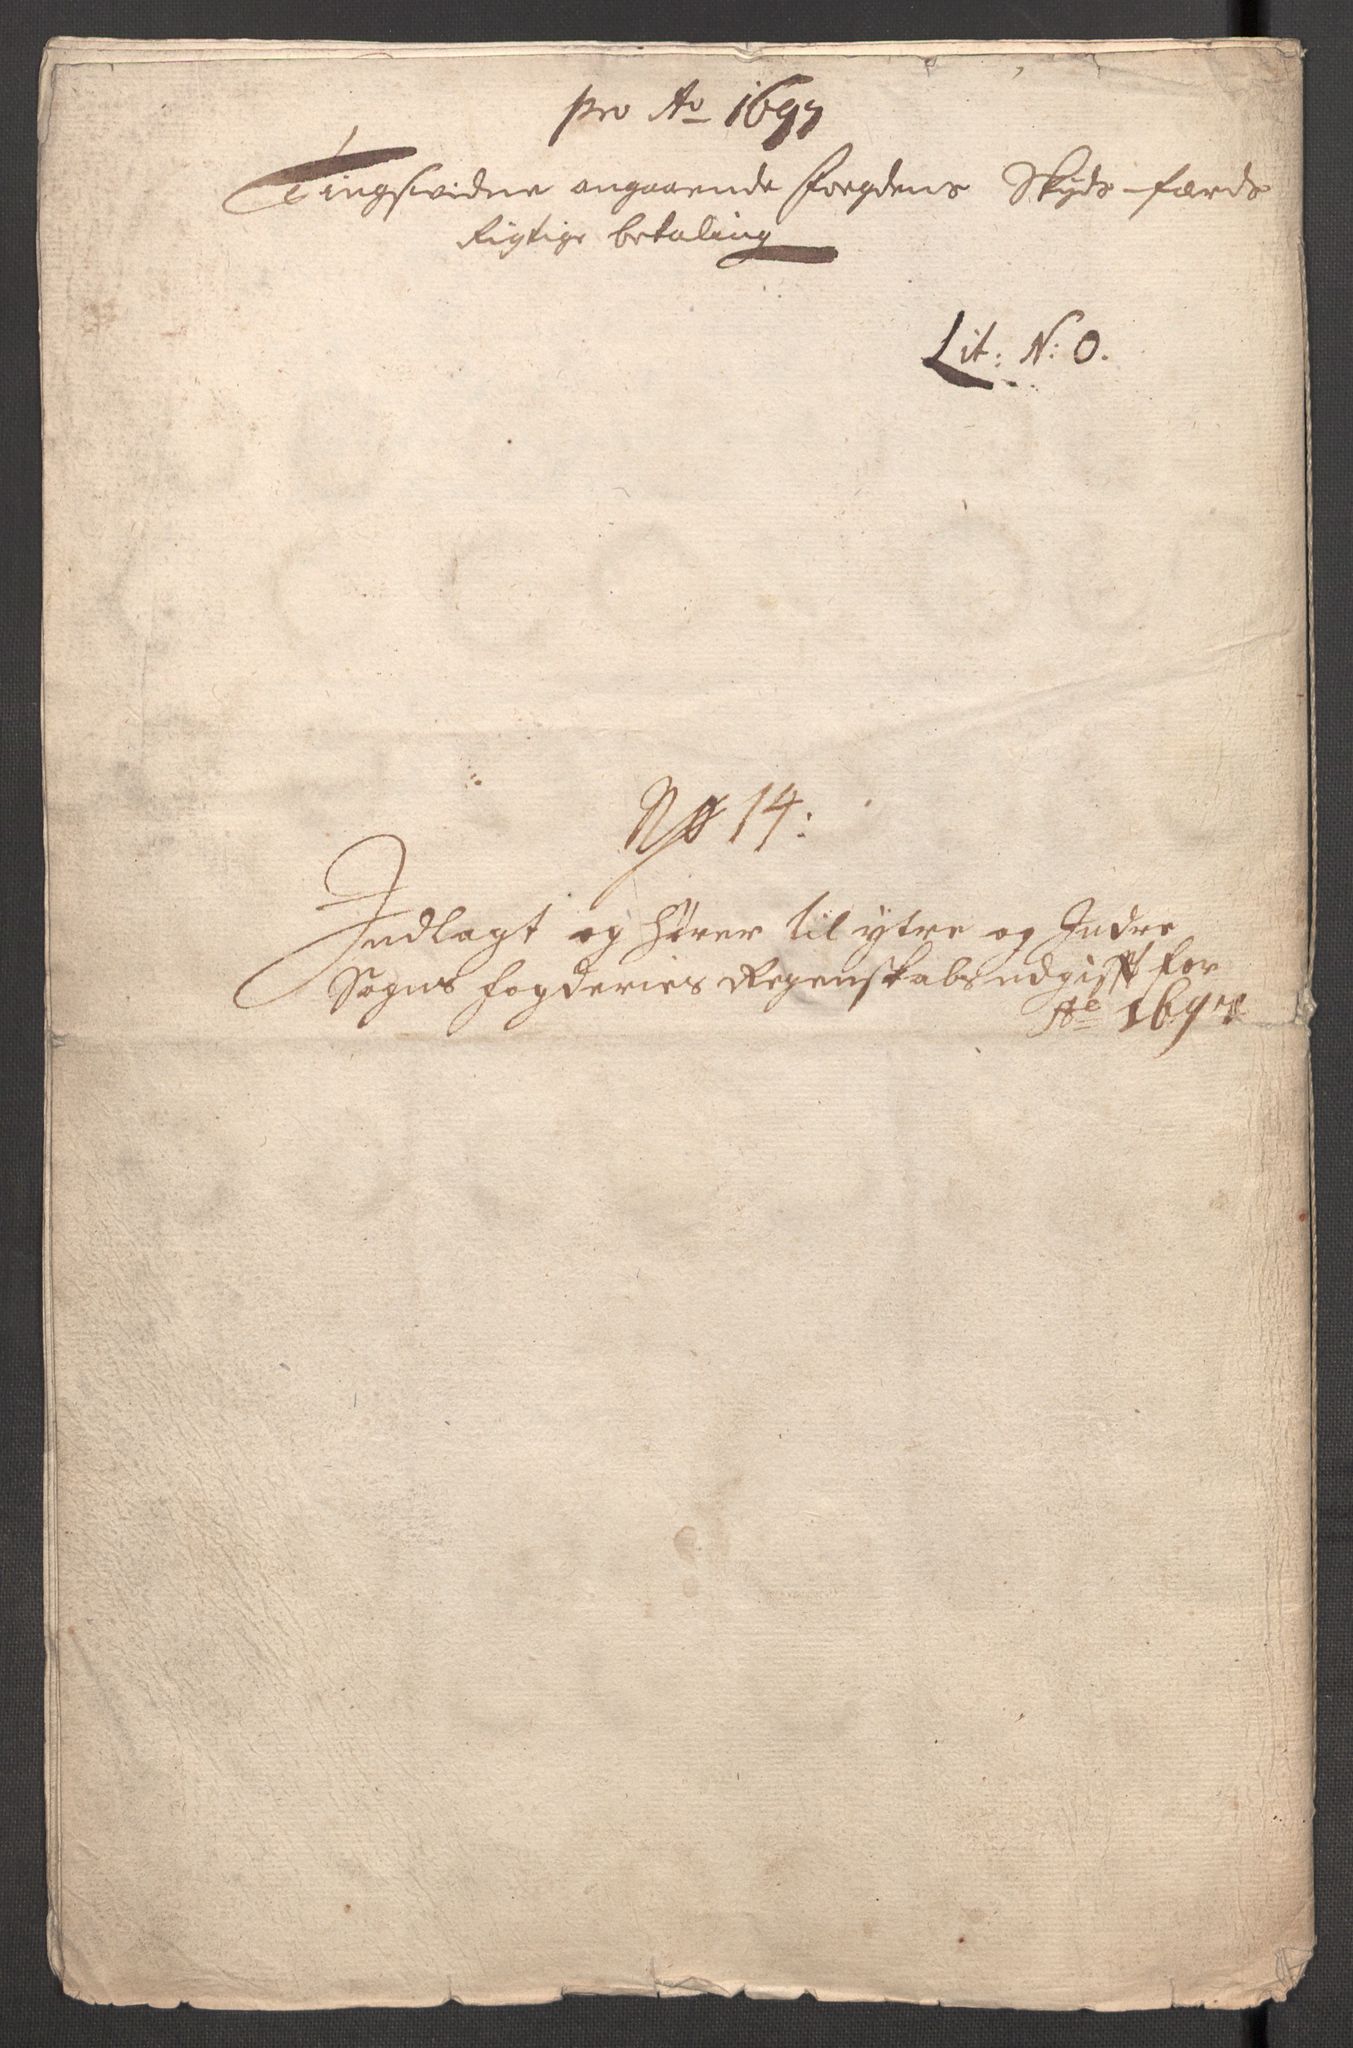 pro Ao 1697
Tingsvidne angaaende foegdens Skyds-færds
Rigtige betaling
Lit: N: O.
No 14:
Indlagt og hører til ytre og Indre
Sogns fogderies Regenskabs udgifft for
Ao 1697